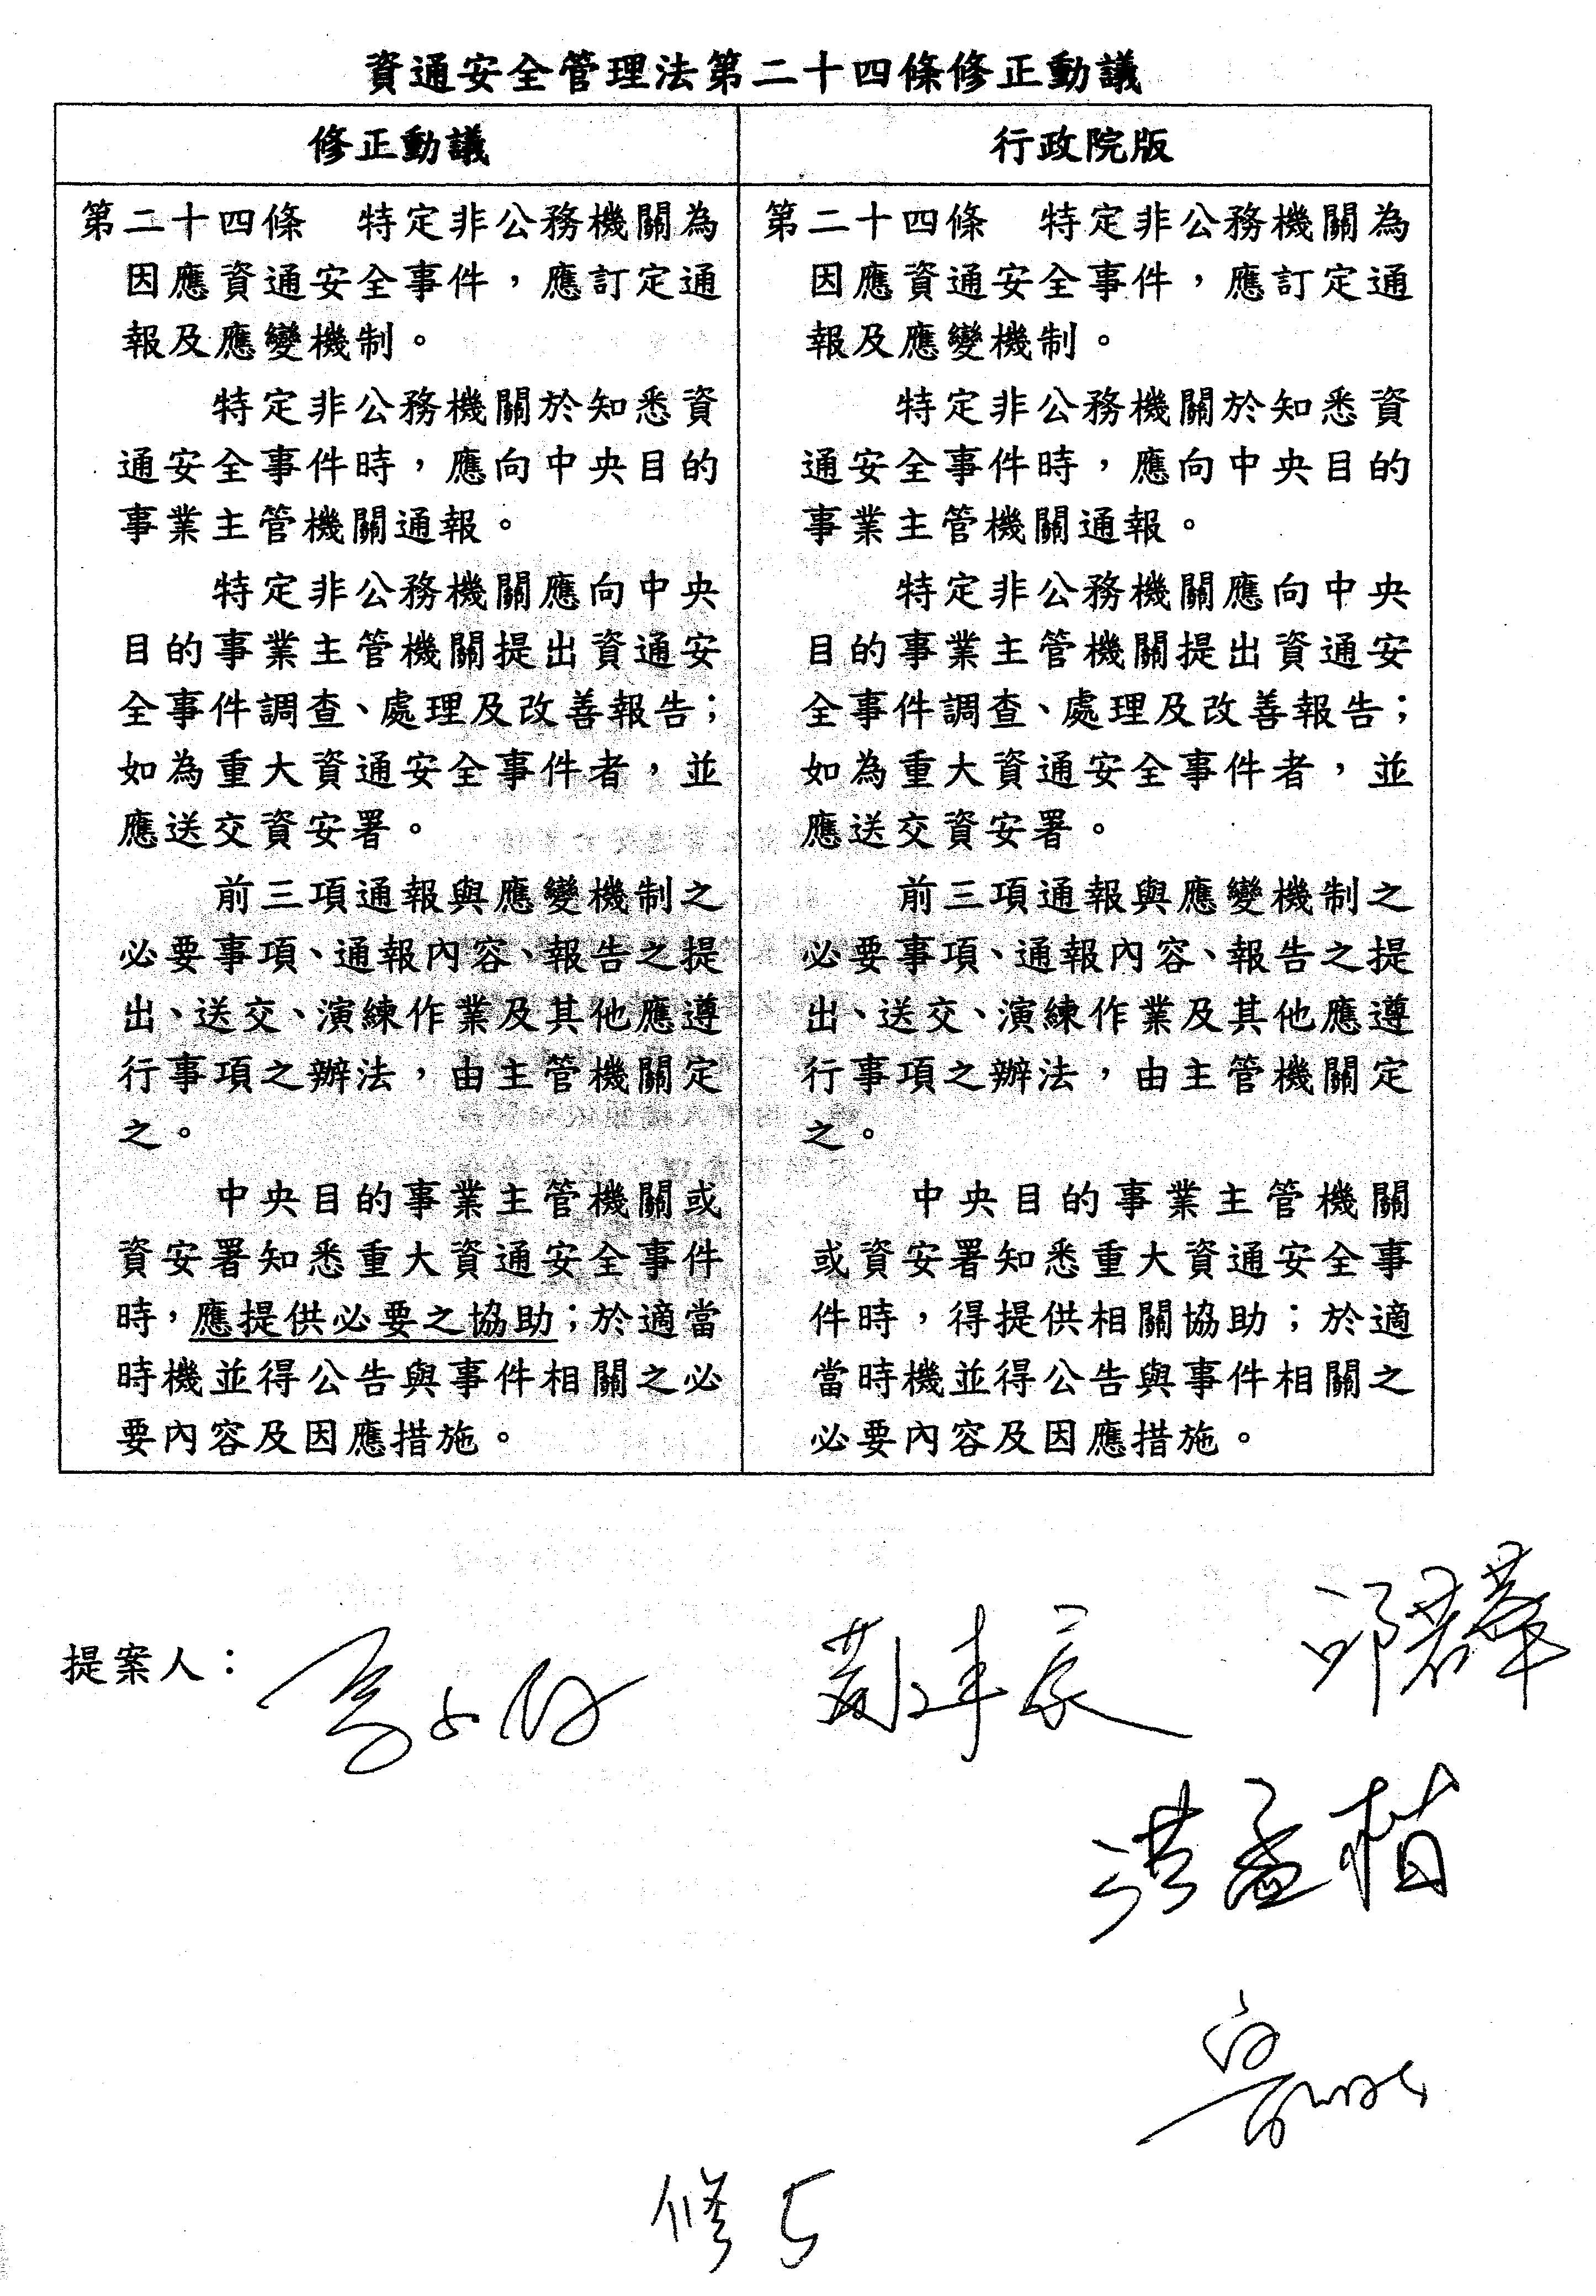 資通安全管理法第二十四條修正動議
修正動議
第二十四條　特定非公務機關為
因應資通安全事件，應訂定通
報及應變機制。
特定非公務機關於知悉資
通安全事件時，應向中央目的
事業主管機關通報。
特定非公務機關應向中央
目的事業主管機關提出資通安
全事件調查、處理及改善報告；
如為重大資通安全事件者，並
應送交資安署。
前三項通報與應變機制之
必要事項、通報內容、報告之提
出、送交、演練作業及其他應遵
行事項之辦法，由主管機關定
之。
中央目的事業主管機關或
資安署知悉重大資通安全事件
時，應提供必要之協助；於適當
時機並得公告與事件相關之必
要內容及因應措施。
行政院版
第二十四條　特定非公務機關為
因應資通安全事件，應訂定通
報及應變機制。
特定非公務機關於知悉資
通安全事件時，應向中央目的
事業主管機關通報。
特定非公務機關應向中央
目的事業主管機關提出資通安
全事件調查、處理及改善報告；
如為重大資通安全事件者，並
應送交資安署。
前三項通報與應變機制之
必要事項、通報內容、報告之提
出、送交、演練作業及其他應遵
行事項之辦法，由主管機關定
之。
中央目的事業主管機關
或資安署知悉重大資通安全事
件時，得提供相關協助；於適
當時機並得公告與事件相關之
必要內容及因應措施。
提案人：
邱若華
洪孟楷
修5